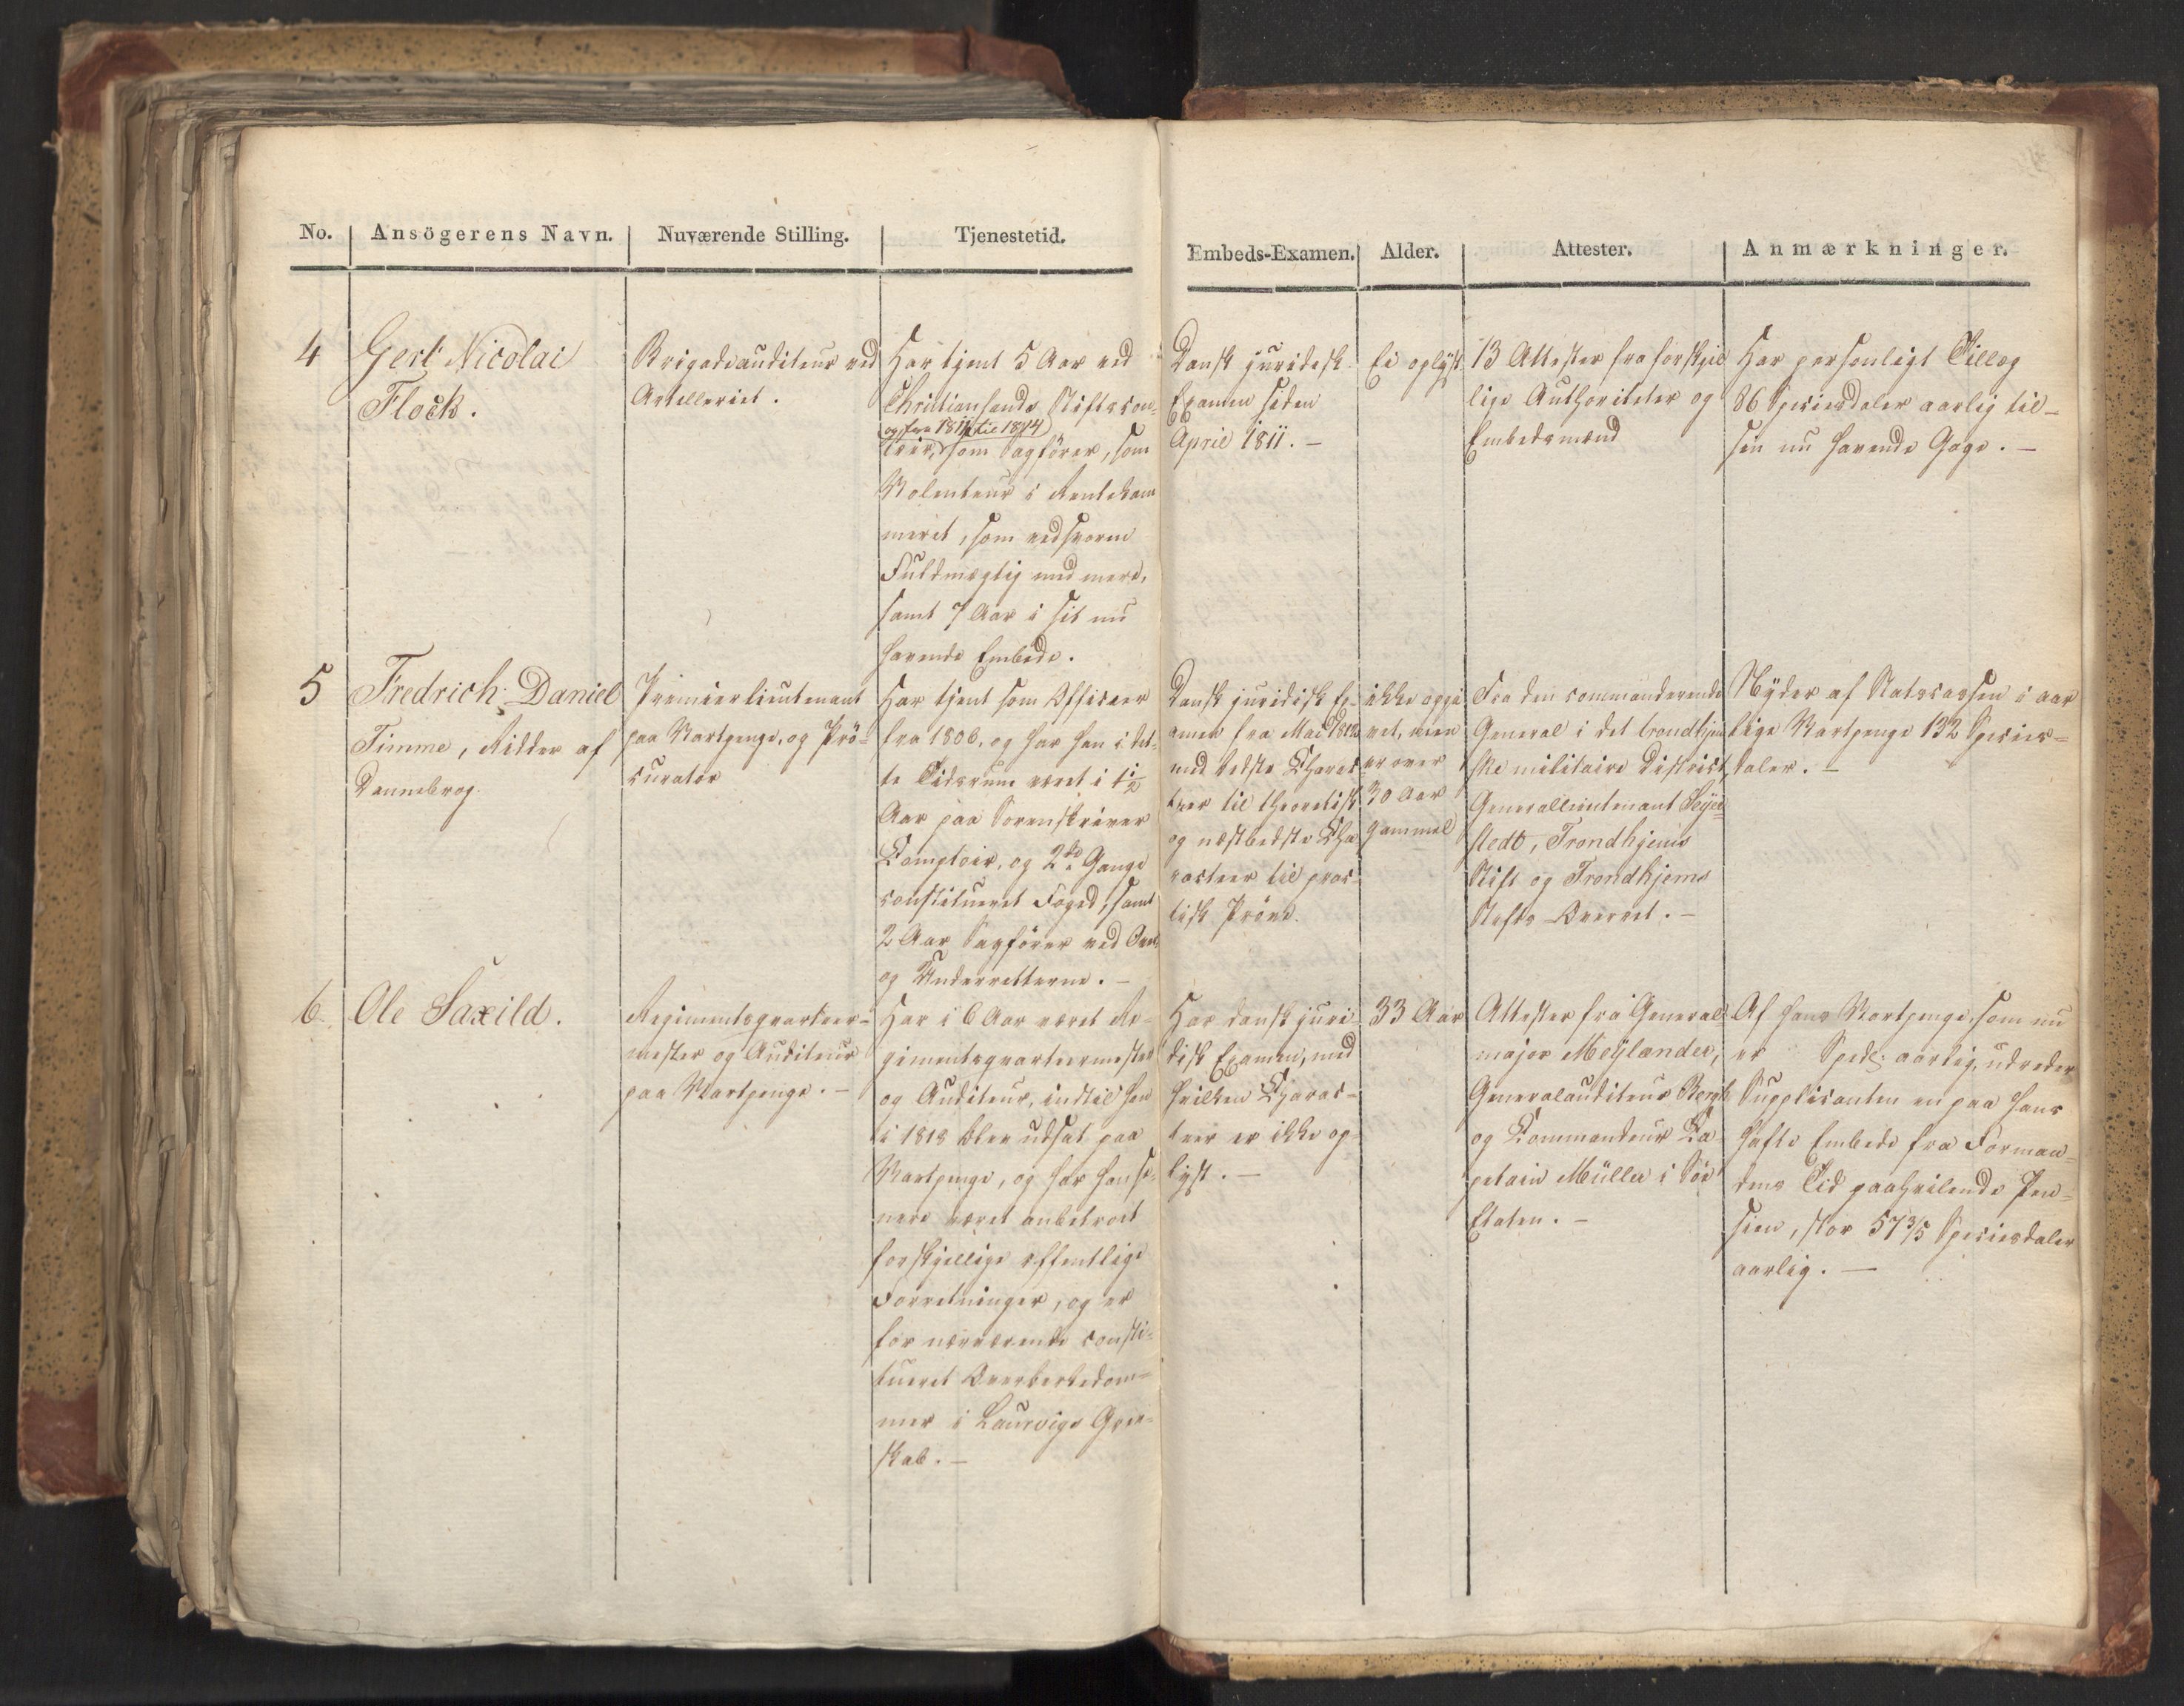 No. Ansögerens Navn. Nuværende Stilling. Tjenestetid.
Embeds-Examen. Alder. Attester. Anmærkninger.
4
Gert Nicolai
Flock.
Brigadeauditeur ved
Artilleriet.
Har tjent 5 Aar ved
Christiansands Stiftscon-
og fra 1811 til 1814
toir, som Sagförer, som
Volenteur i Rentekam
meret, som edsvoren
Fuldmægtig med mere,
samt 7 Aar i sit nu
havende Embede.
Dansk juridisk
Examen siden
April 1811. –
Ei oplyst
13 Attester fra forskjel
lige Authoriteter og
Embedsmænd
Har personligt Tillæg
86 Speciesdaler aarlig til
sin nu havende Gage. –
5
Fredrich Daniel
Timme, Ridder af
Dannebrog.
Premierlieutenant
paa Vartpenge, og Pro-
curator
Har tjent som Officeer
fra 1806, og har han i det-
te Tidsrum været i 1½
Aar paa Sorenskriver
Comptoir, og 2de Gange
constitueret Foged, samt
2 Aar Sagförer ved Over
og Underretterne. –
Dansk juridisk Ex-
amen fra Mai
med bedste Charac
teer til theoretisk
og næstbedste Cha
racteer til prac-
tisk Pröve.
ikke opgi
vet, men
er over
30 Aar
gammel
Fra den commanderende
General i det trondhjem
ske militaire District,
Generallieutenant Seyer
stedt, Trondhjems
Stift og Trondhjems
Stifts Overret. –
Nyder af Statscassen i aar
lige Vartpenge 132 Species-
daler. –
6
Ole Saxild.
Regimentsqvarteer-
mester og Auditeur
paa Vartpenge. –
Har i 6 Aar været Re-
gimentsqvarteermester
og Auditeur, indtil han
i 1818 blev udsat paa
Vartpenge, og har han se-
nere været anbetroet
forskjellige offentlige
Forretninger, og er
for nærværende consti-
tueret Overbirkedom-
mer i Laurvigs Grev-
skab. –
Har dansk juri
disk Examen, med
hvilken Charac-
teer er ikke op-
lyst. –
33 Aar
Attester fra General-
major Meÿlander,
Generalauditeur Bergh
og Commandeur Ca-
pitain Müller i Söe
Etaten. –
Af hans Vartpenge, som nu
er Spdlr aarlig, udreder
Supplicanten en paa hans
hafte Embede fra Forman-
dens Tid paahvilende Pen-
sion, stor 57 3/5 Speciesdaler
aarlig. –